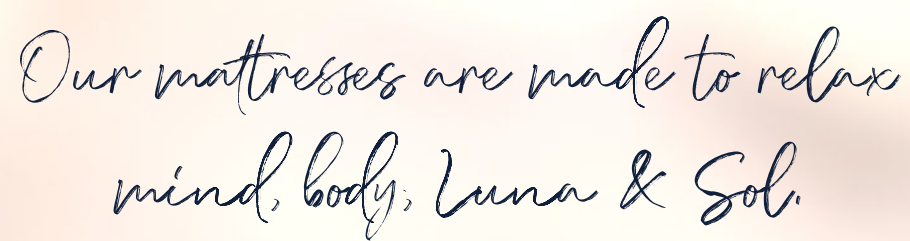 Our mattresses are made to relax
mind, body, Luna & Sol.